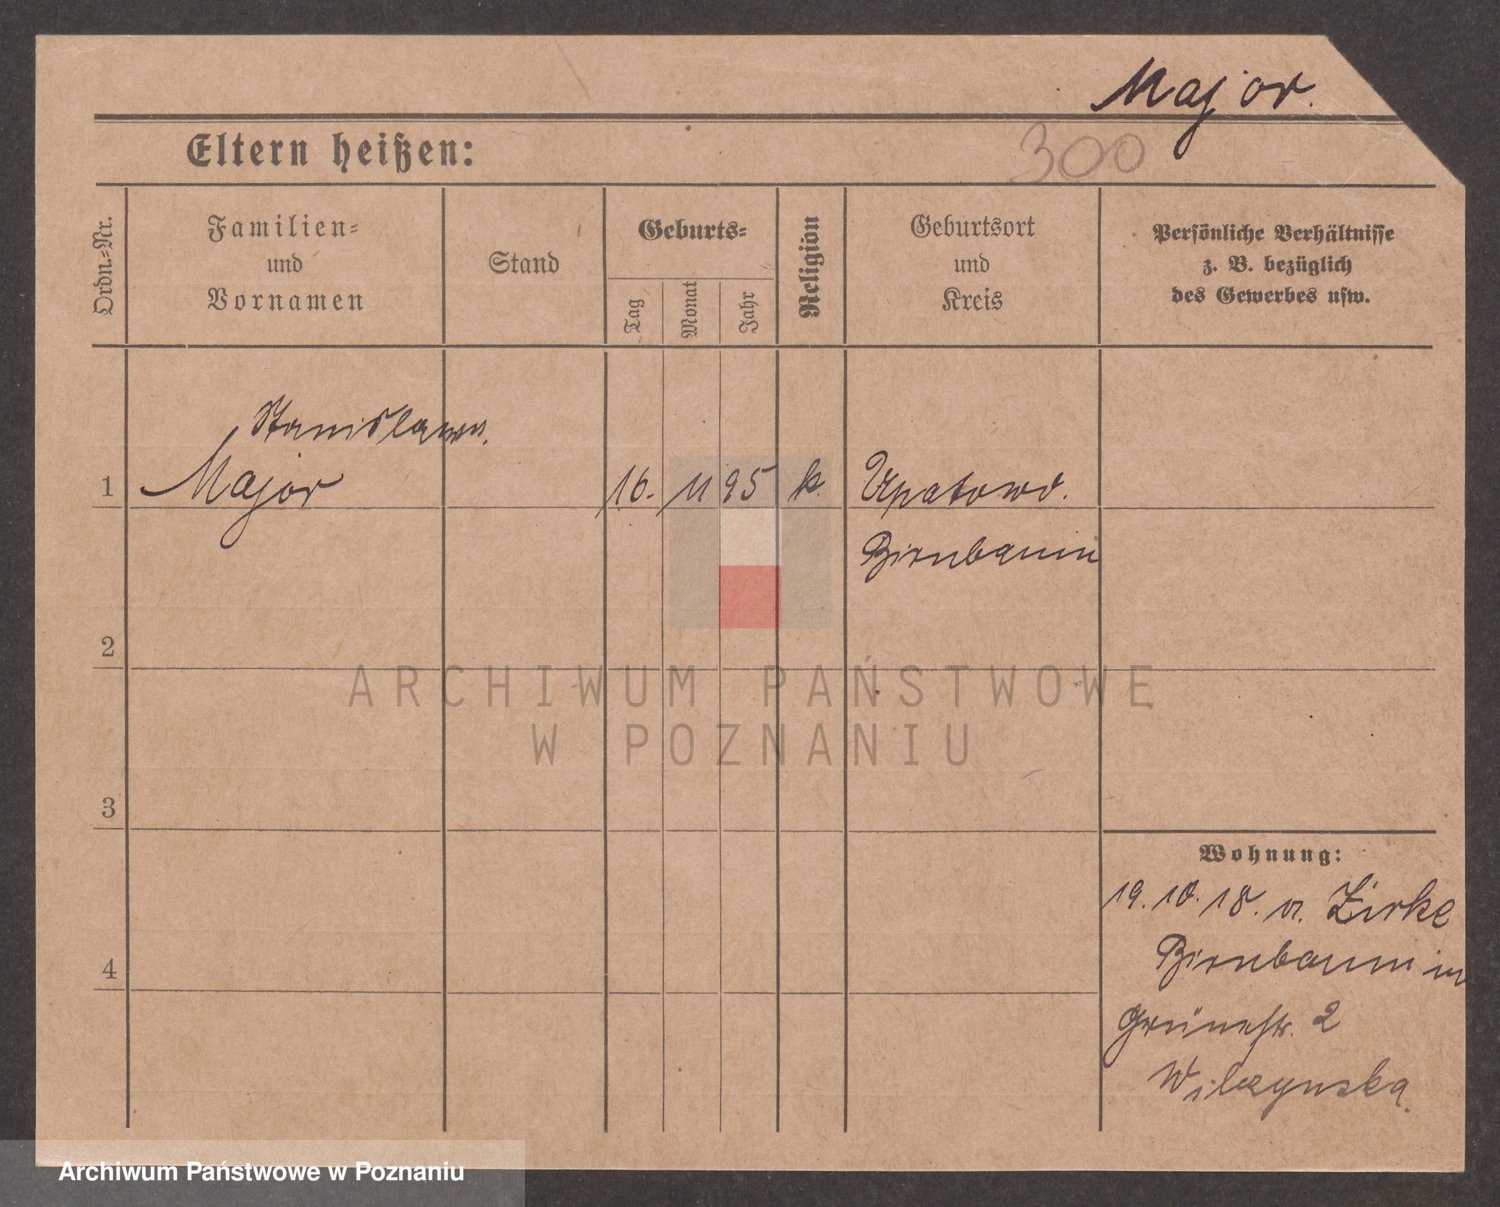 Major.
Eltern heißen:
300
Ordn.-Nr.
Familien-
und
Vornamen
Stand
Geburts-
Tag
Monat
Jahr
Religion
Geburtsort
und
Kreis
Persönliche Verhältnisse
z. B. bezüglich
des Gewerbes usw.
Stanislawa.
1 Major 16. 11 95 k. Upatowo.
Birnbaum
2
ARCHIWUM PAŃSTWOWE
W POZNANIU
3
Wohnung:
19.10.18. v. Zirke
Birnbaum in
4
Grünestr. 2
Wilczynska.
Archiwum Państwowe w Poznaniu